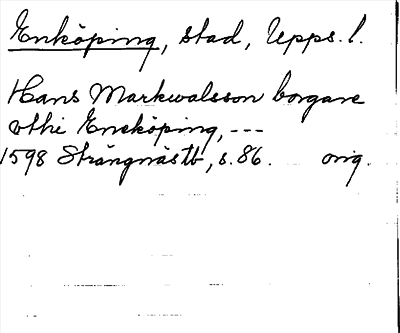 Enköping, stad, Upps. l.
Hans Markvalsson borgare
vthi Eneköping, ---
1598 Strängnästb, s. 86. orig.